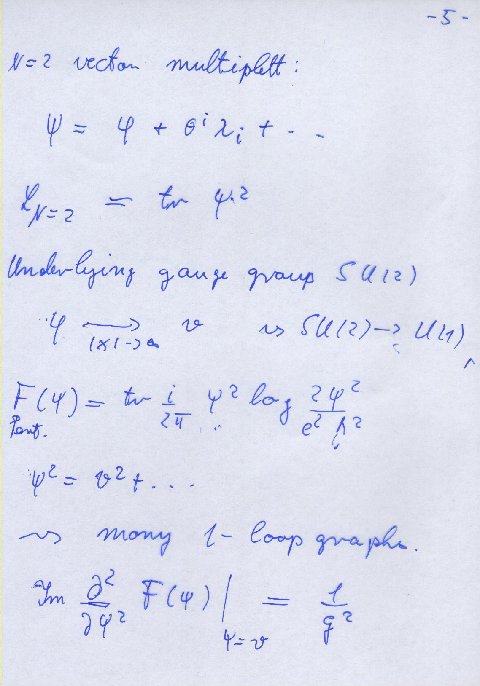 -5-
N=2 vector multiplett:
ψ = φ + θ^i λ_i + ...
ℒ_{N=2} = tr ψ^2
Underlying gauge group SU(2)
φ ⟶_{|x|→∞} v ⇝ SU(2)→U(1),
F_{Pert.}(ψ) = tr i/2π ψ^2 log 2ψ^2/e^2Λ^2
ψ^2 = v^2 + ...
⇝ many 1-loop graphs.
Im ∂^2/∂ψ^2 F(ψ)|_{ψ=v} = 1/g^2